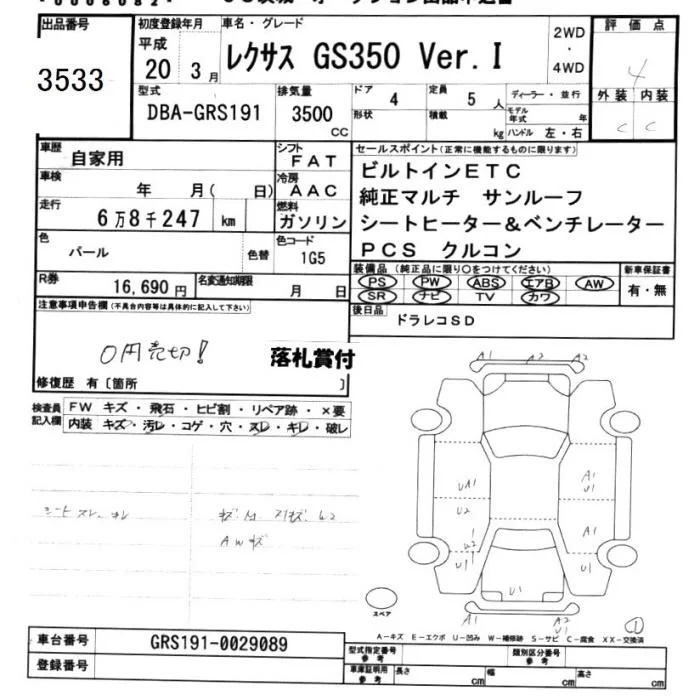 出品番号
3533
初度登録年月
平成
20 3月
車名・グレード
レクサス GS350 Ver.I
2WD
・
4WD
評価点
4
外装 内装
C C
型式
DBA-GRS191
排気量
3500
CC
ドア
4
形状
定員
5人
積載
kg
ディーラー・並行
モデル年式 年
ハンドル 左・右
車歴
自家用
車検
年 月( 日)
走行
6万8千247 km
色
パール
色替
シフト
FAT
冷房
AAC
燃料
ガソリン
色コード
1G5
R券
16,690円
名変通知期限
月 日
セールスポイント(正常に機能するものに限ります)
ビルトインETC
純正マルチ サンルーフ
シートヒーター&ベンチレーター
PCS クルコン
装備品(純正品に限り○をつけてください)
PS PW ABS エアB AW
SR ナビ TV カワ
新車保証書
有・無
後日品
ドラレコSD
注意事項申告欄(不具合内容等は具体的に記入して下さい)
0円売切!
落札賞付
修復歴 有〔箇所 〕
検査員記入欄
FW キズ・飛石・ヒビ割・リペア跡・×要
内装 キズ・汚レ・コゲ・穴・スレ・キレ・破レ
シートスレ
AWキズ
A1 A2 A2
A1
U1
UA1
U2
A1
U1
A1
U1
U1
A1 A2
U1
スペア
1
A-キズ E-エクボ U-凹み W-補修跡 S-サビ C-腐食 XX-交換済
車台番号
GRS191-0029089
登録番号
型式指定番号
参考
類別区分番号
参考
車庫証明用
参考
長さ cm
幅 cm
高さ cm